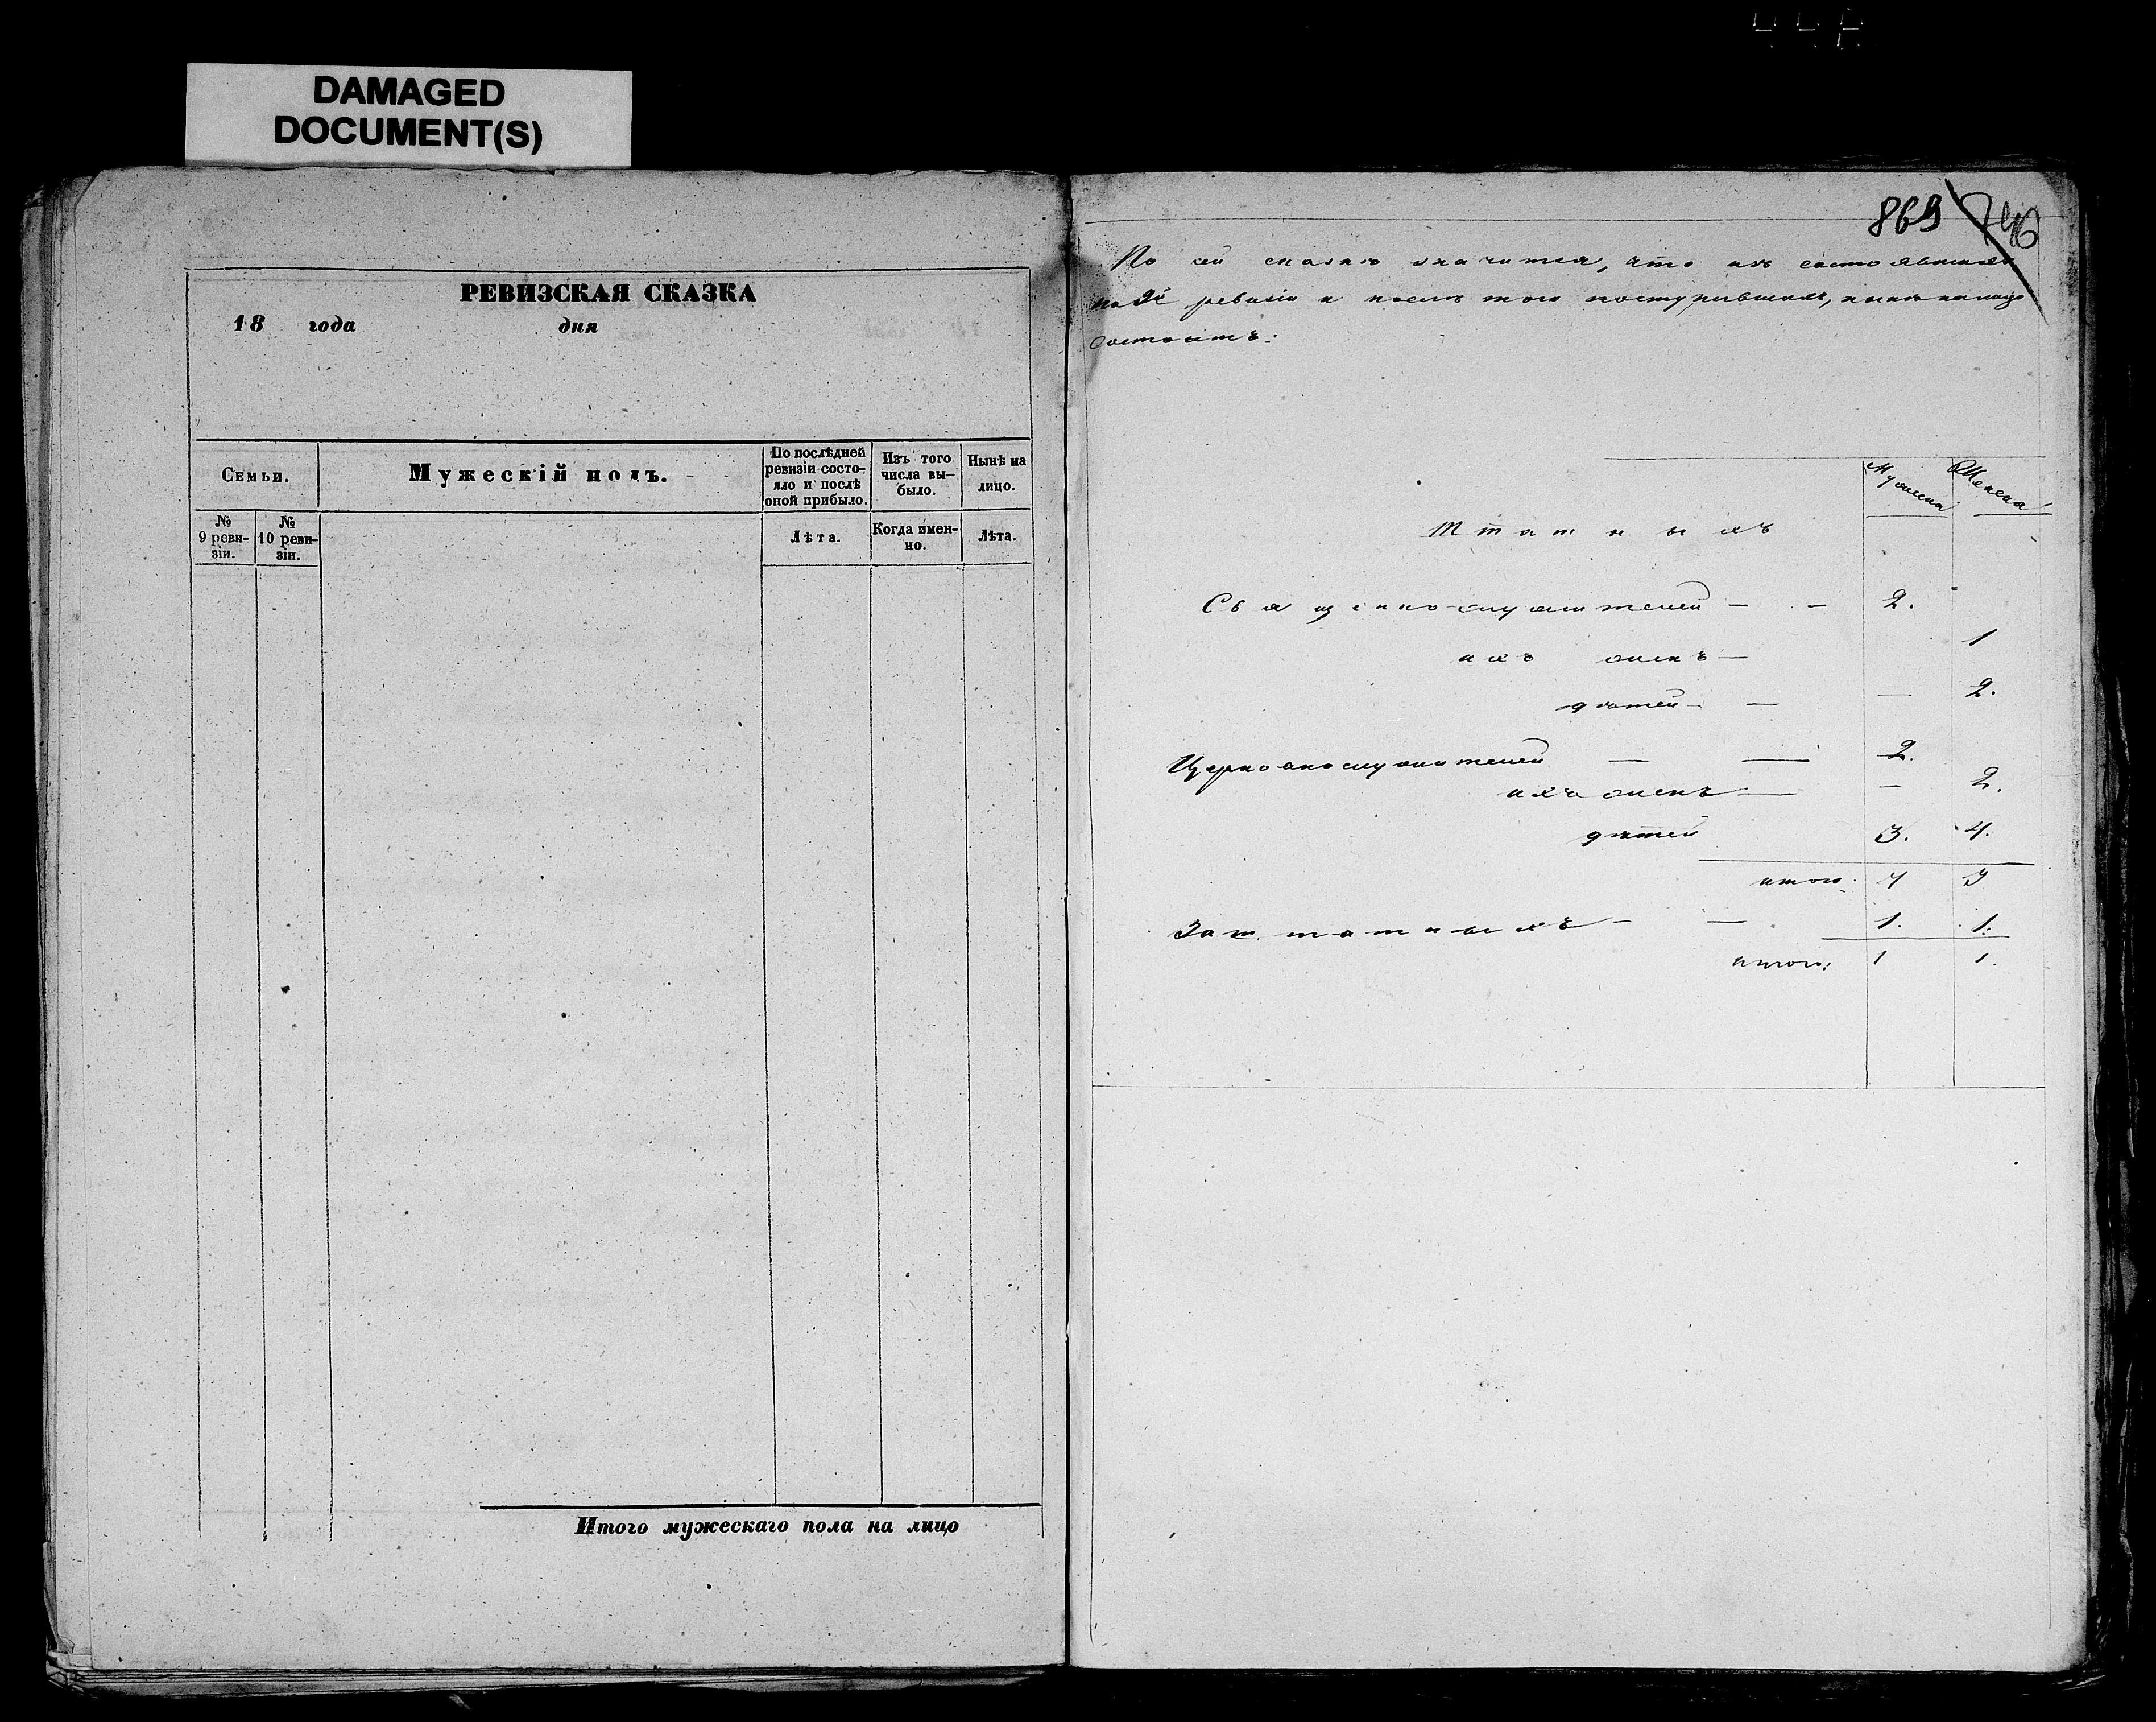 DAMAGED
DOCUMENT(S)
РЕВИЗСКАЯ СКАЗКА
18 года дня
Семьи.
Мужескій полъ.
По послѣдней
ревизіи состо-
яло и послѣ
оной прибыло.
Изъ того
числа вы-
было.
Нынѣ на
лицо.
№
9 реви-
зіи.
№
10 реви-
зіи.
Лѣта.
Когда имен-
но.
Лѣта.
Итого мужескаго пола на лицо
869 746
По сей сказкѣ значится, что изъ состоявшихъ
по 9й ревизіи и послѣ того поступившихъ, нынѣ на лицо
состоитъ:
Мужеска Женска
Штатныхъ
Священно-служителей — — 2.
ихъ женъ — 1
дѣтей — — — 2.
Церковнослужителей — — 2.
ихъ женъ — — 2.
дѣтей 3. 4.
итого 7 9
Заштатныхъ — — 1. 1.
итого: 1 1.